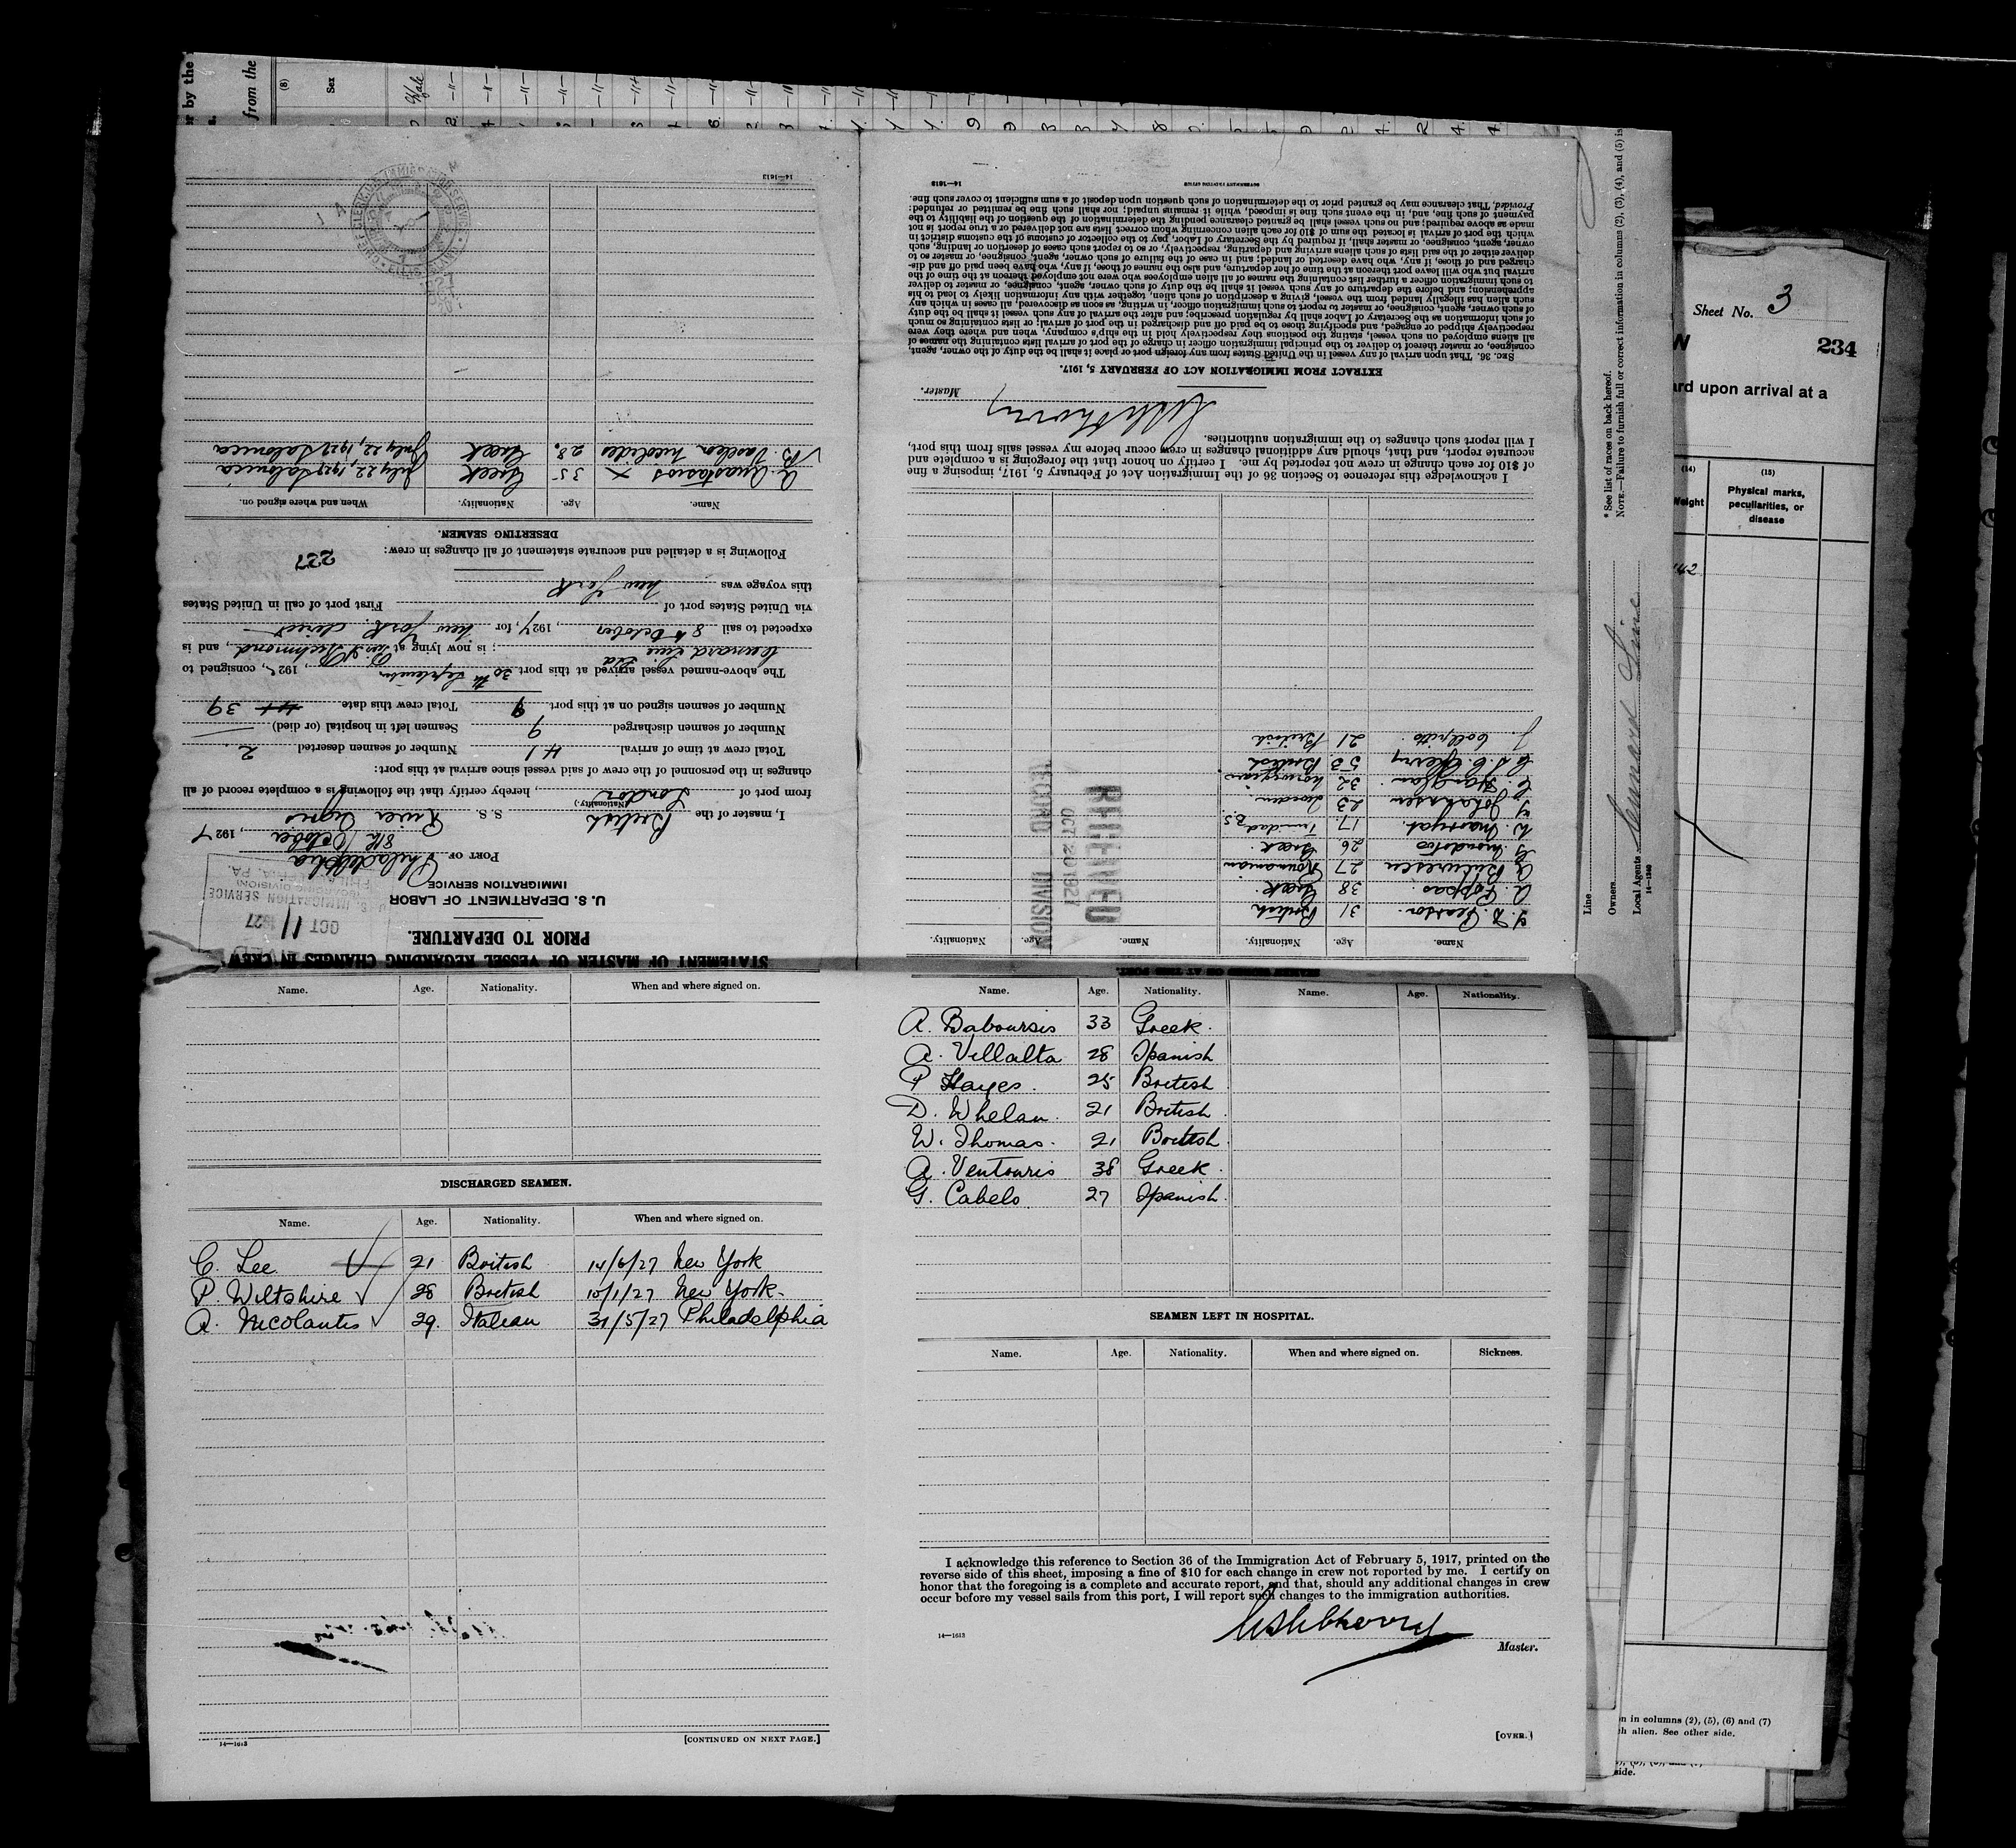 Sheet No. 3
234
ard upon arrival at a
(14) (15)
Weight Physical marks, peculiarities, or disease
n in columns (2), (5), (6) and (7)
h alien. See other side.
side.
r by the
from the
(8)
Sex
Male
* See list of races on back hereof.
NOTE.—Failure to furnish full or correct information in columns (2), (3), (4), and (5) is
Line
Owners
Local Agents Cunard Line
14—1240
STATEMENT OF MASTER OF VESSEL REGARDING CHANGES IN CREW
PRIOR TO DEPARTURE.
U. S. DEPARTMENT OF LABOR
IMMIGRATION SERVICE
U. S. IMMIGRATION SERVICE
PHILADELPHIA, PA
OCT 11 1927
PORT OF Philadelphia
8th October, 1927
I, master of the British S. S. River
(Nationality)
from port of London, hereby certify that the following is a complete record of all
changes in the personnel of the crew of said vessel since arrival at this port:
Total crew at time of arrival 41 Number of seamen deserted 2
Number of seamen discharged 9 Seamen left in hospital (or died)
Number of seamen signed on at this port 9 Total crew this date 39
The above-named vessel arrived at this port 30th September, 192, consigned to
Cunard Line; is now lying at Richmond, and is
expected to sail 8th October, 1927, for New York direct
via United States port of First port of call in United States
this voyage was New York
Following is a detailed and accurate statement of all changes in crew:
227
DESERTING SEAMEN.
Name. Age. Nationality. When and where signed on.
A. Anastasios X 35 Greek July 22, 1927 Salonica
B. Nicolides 28. Greek July 22, 1927 Salonica
ELLIS ISLAND
14—1613
Name. Age. Nationality. When and where signed on.
DISCHARGED SEAMEN.
Name. Age. Nationality. When and where signed on.
C. Lee 21 British 14/6/27 New York
P. Wiltshire 28 British 10/1/27 New York.
A. Nicolantis 29. Italian 31/5/27 Philadelphia
14—1613
[CONTINUED ON NEXT PAGE.]
Name. Age. Nationality. Name. Age. Nationality.
A. Baboursis 33 Greek.
A. Villalta 28 Spanish
P Hayes. 25 British
D. Whelan. 21 British.
W. Thomas. 21 British
A. Ventouris 38 Greek.
G. Cabelo. 27 Spanish.
SEAMEN LEFT IN HOSPITAL.
Name. Age. Nationality. When and where signed on. Sickness.
I acknowledge this reference to Section 36 of the Immigration Act of February 5, 1917, printed on the
reverse side of this sheet, imposing a fine of $10 for each change in crew not reported by me. I certify on
honor that the foregoing is a complete and accurate report, and that, should any additional changes in crew
occur before my vessel sails from this port, I will report such changes to the immigration authorities.
14—1613
Master.
[OVER.]
SEAMEN SIGNED ON AT THIS PORT.
Name. Age. Nationality. Name. Age. Nationality.
Pearson. 31 British
A. Pappas. 38 Greek.
27 Roumanian
26 Greek.
W. Marryat. 17. Trinidad
Johanssen 23 Sweden
C. 32 Norwegian
53 British
J. 21 British
RECEIVED
OCT 20 1927
RECORD DIVISION
I acknowledge this reference to Section 36 of the Immigration Act of February 5, 1917, imposing a fine
of $10 for each change in crew not reported by me. I certify on honor that the foregoing is a complete and
accurate report, and that, should any additional changes in crew occur before my vessel sails from this port,
I will report such changes to the immigration authorities.
Master.
EXTRACT FROM IMMIGRATION ACT OF FEBRUARY 5, 1917.
SEC. 36. That upon arrival of any vessel in the United States from any foreign port or place it shall be the duty of the owner, agent,
consignee, or master thereof to deliver to the principal immigration officer in charge of the port of arrival lists containing the names of
all aliens employed on such vessel, stating the positions they respectively hold in the ship's company, when and where they were
respectively shipped or engaged, and specifying those to be paid off and discharged in the port of arrival; or lists containing so much
of such information as the Secretary of Labor shall by regulation prescribe; and after the arrival of any such vessel it shall be the duty
of such owner, agent, consignee, or master to report to such immigration officer, in writing, as soon as discovered, all cases in which any
such alien has illegally landed from the vessel, giving a description of such alien, together with any information likely to lead to his
apprehension; and before the departure of any such vessel it shall be the duty of such owner, agent, consignee, or master to deliver
to such immigration officer a further list containing the names of all alien employees who were not employed thereon at the time of the
arrival but who will leave port thereon at the time of her departure, and also the names of those, if any, who have been paid off and dis-
charged and of those, if any, who have deserted or landed; and in case of the failure of such owner, agent, consignee, or master so to
deliver either of the said lists of such aliens arriving and departing, respectively, or so to report such cases of desertion or landing, such
owner, agent, consignee, or master shall, if required by the Secretary of Labor, pay to the collector of customs of the customs district in
which the port of arrival is located the sum of $10 for each alien concerning whom correct lists are not delivered or a true report is not
made as above required; and no such vessel shall be granted clearance pending the determination of the question of the liability to the
payment of such fine, and, in the event such fine is imposed, while it remains unpaid; nor shall such fine be remitted or refunded:
Provided, That clearance may be granted prior to the determination of such question upon deposit of a sum sufficient to cover such fine.
14—1613
GOVERNMENT PRINTING OFFICE